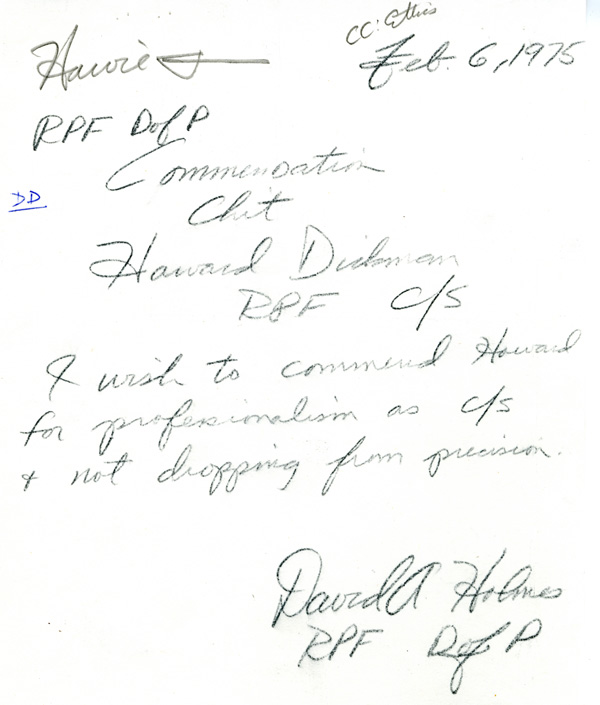 CC: Ethics
Howie
Feb. 6, 1975
RPF D of P
Commendation
DD
Chit
Howard Dickman
RPF C/S
I wish to commend Howard
for professionalism as C/S
+ not dropping from precision.
David A Holmes
RPF D of P